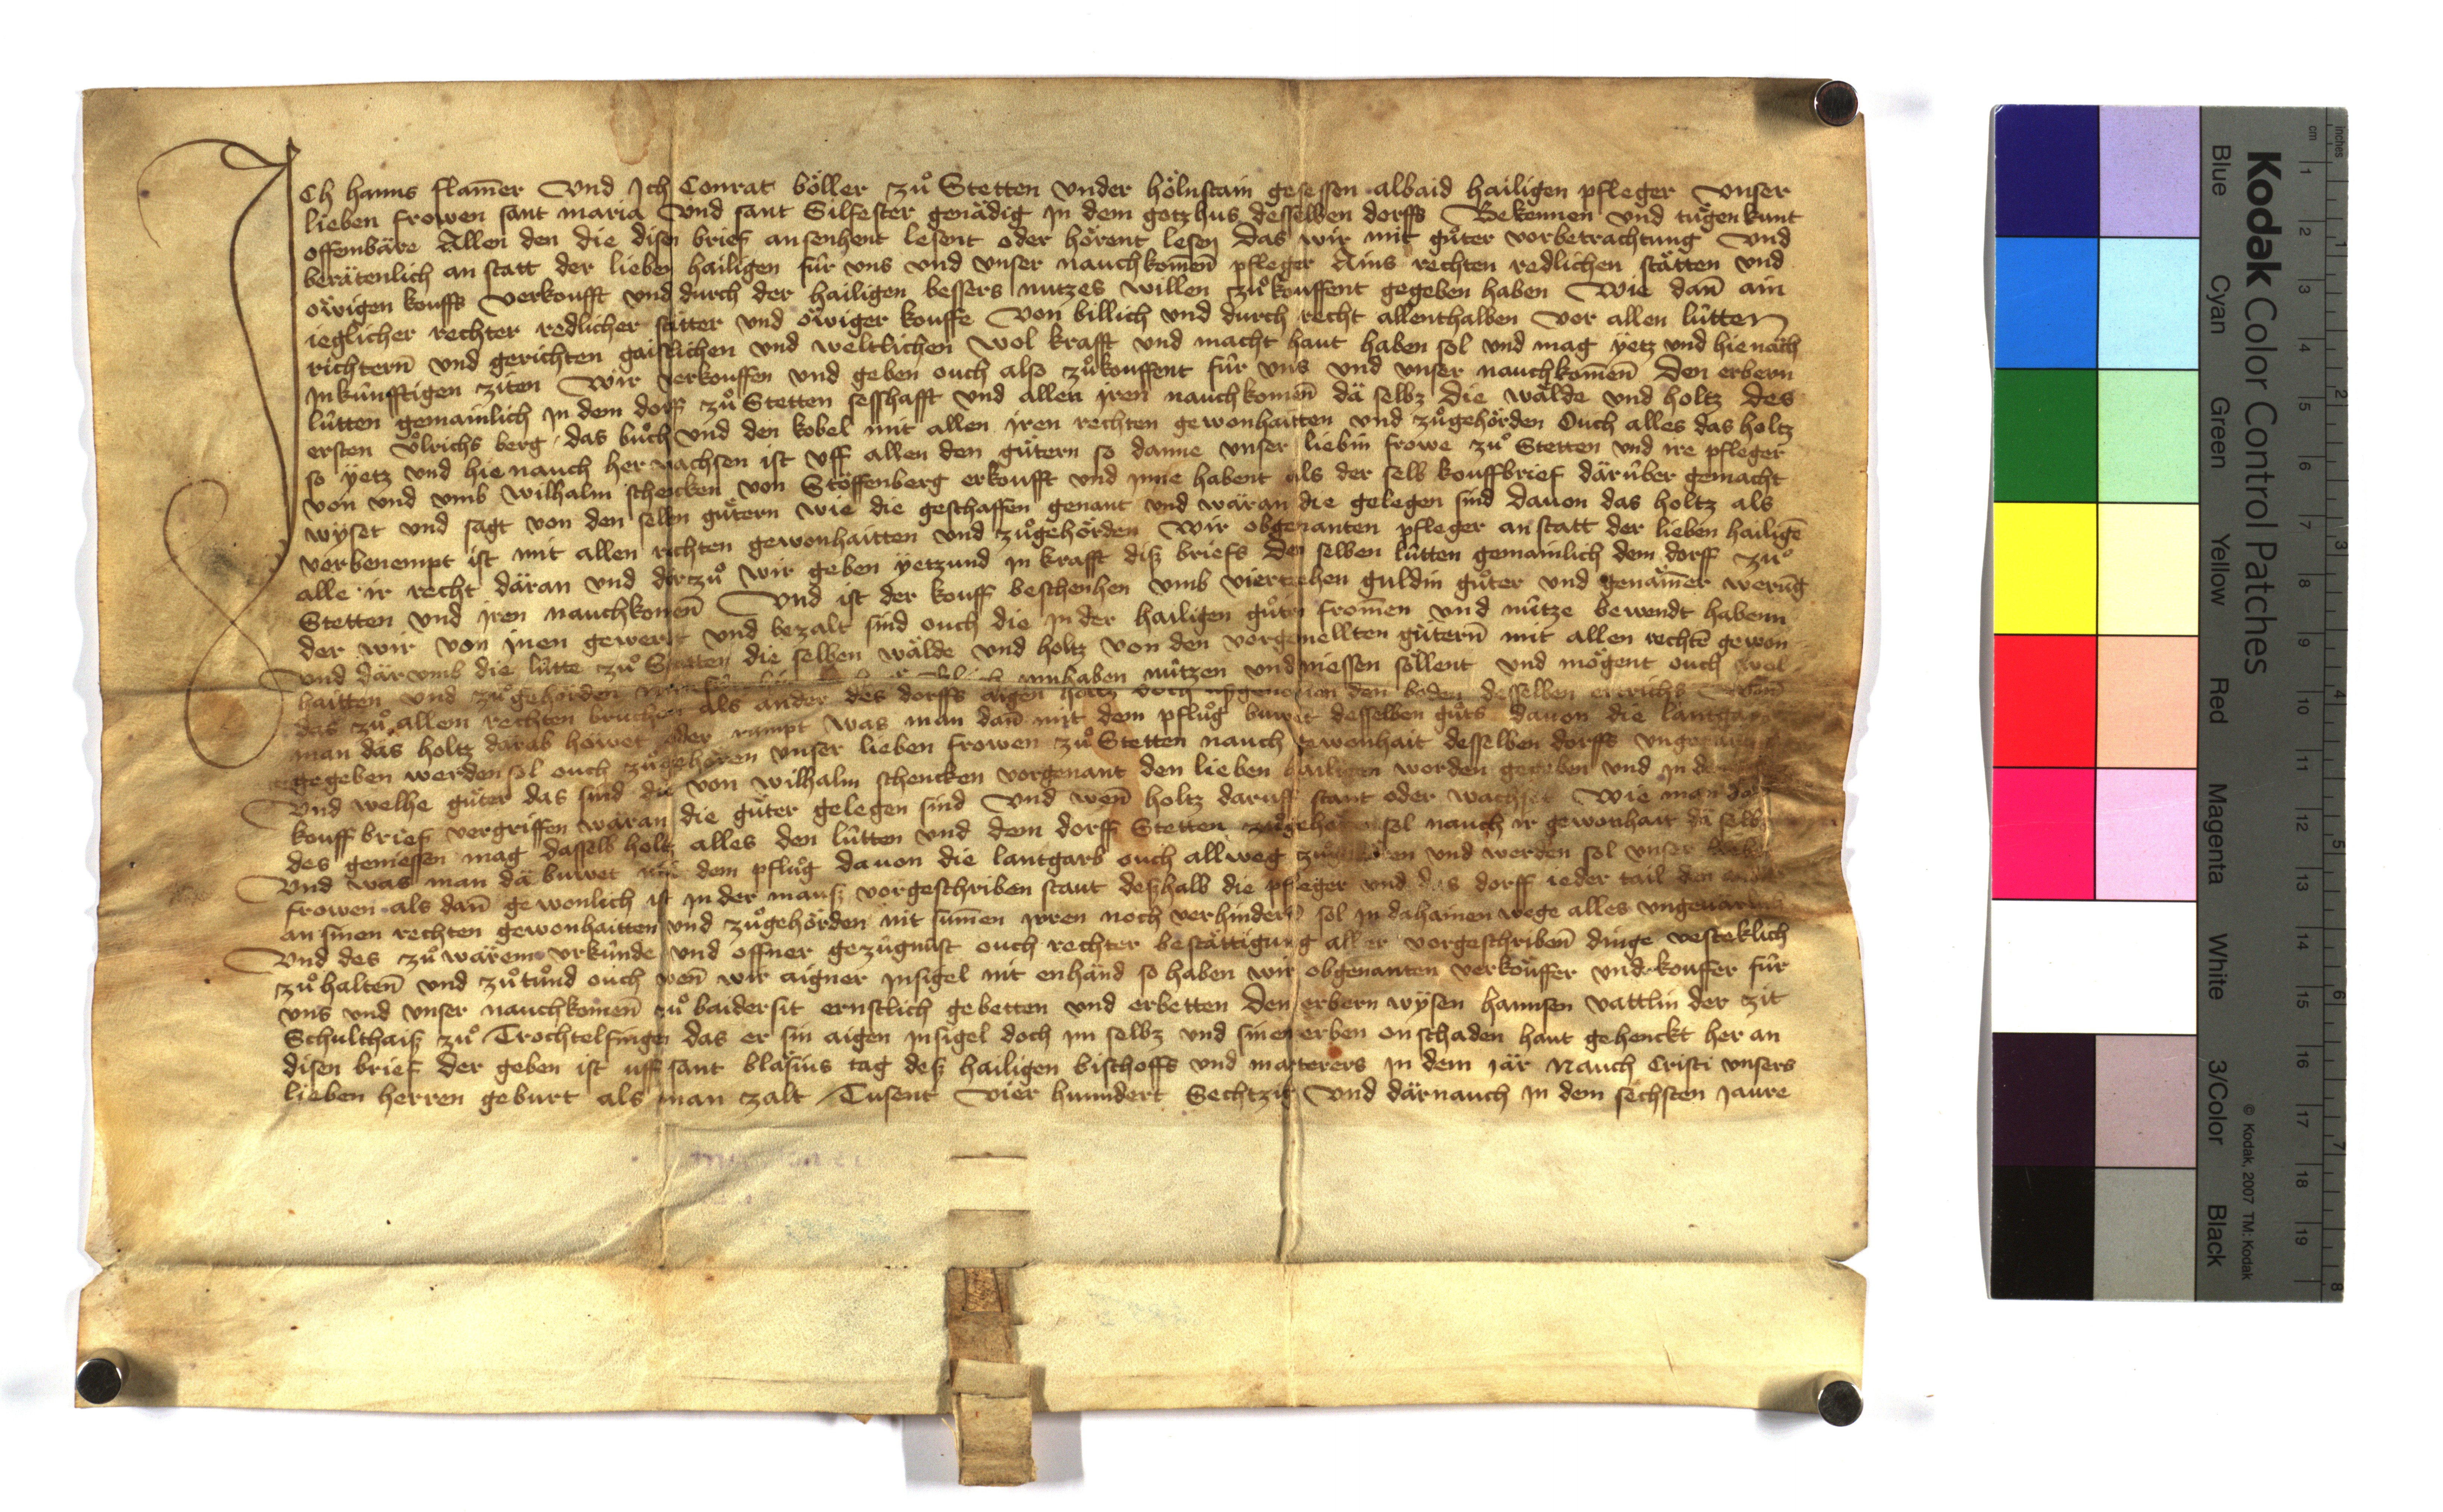 ICh hanns flam̄er Vnd Ich Conrat böller zů Stetten vnder hölnstain gesessen albaid hailigen pfleger Vnser
lieben frowen sant maria Vnd sant Silfester genådig In dem gotzhus desselben dorffs Bekennen vnd tůgen kunt
offembåre Allen den die disen brief ansenhent lesent oder hörent lesen Das wir mit gůter vorbetrachtung Vnd
beråtenlich an statt der lieben hailigen für vns vnd vnser nauchkom̄en̄ pfleger Ains rechten redlichen ståtten vnd
öwigen kouffs Verkoufft vnd durch der hailigen bessers nutzes willen zů kouffent gegeben haben Wie dan̄ ain
ieglicher rechter redlicher ståtter vnd öwiger kouffe Von billich vnd durch recht allenthalben vor allen lütten
richtern̄ vnd gerichten gaistlichen vnd weltlichen wol krafft vnd macht haut haben sol vnd mag yetz vnd hienäch
In künfftigen ziten Wir verkouffen vnd geben ouch also zůkouffent für vns vnd vnser nauchkom̄en̄ Den erbern
lütten gemainlich In dem dorff zů Stetten sesshafft vnd allen Iren nauchkomen̄ dä selbz die wålde vnd holtz Des
ersten Vͦlrichs berg das bůch vnd den kobel mit allen Iren rechten gewonhaitten vnd zůgehörden Ouch alles das holtz
so yetz vnd hie nauch her wachsen ist vff allen den gůtern so danne vnser liebin frowe zů Stetten vnd ire pfleger
von vnd vmb wilhalm schencken von Stöffenberg erkoufft vnd Inne habent als der selb kouffbrief därüber gemacht
wyset vnd sagt von den selben gůtern wie die geschaffen genant vnd wäran die gelegen sind dauon das holtz als
vorbenempt ist mit allen rechten gewonhaitten vnd zůgehörden Wir obgenanten pfleger an statt der lieben hailigē
alle ir recht däran vnd dartzů wir geben yetzund In krafft diß briefs Den selben lütten gemainlich dem dorff zů
Stetten vnd Iren nauchkomen̄ Vnd ist der kouff beschenhen vmb viertzehen guldin gůter vnd genåm̄er werūg
der wir von Inen gewert vnd bezalt sind ouch die In der hailigen gůten from̄en vnd nütze bewendt habenn
Vnd därvmb die lütte zů Stetten die selben wålde vnd holtz von den vorgemellten gůtern̄ mit allen rechtē gewon
haitten vnd zůgehörden Innhaben nützen vnd niessen söllent vnd mögent ouch wol
das zů allem rechten bruchen als ander des dorffs aigen holtz doch vßgenomen den boden desselben ertrichs
man das holtz därab höwet oder rumpt was man dan̄ mit dem pflůg buwet desselben gůts dauon die lantgarb
gegeben werden sol ouch zůgehören vnser lieben frowen zů Stetten nauch gewonhait desselben dorffs
Vnd welhe gůter das sind die von wilhalm schencken vorgenant den lieben hailigen worden gegeben vnd In dem
kouff brief vergriffen wäran die gůter gelegen sind Vnd wen̄ holtz daruff staut oder wachset Wie man das
des geniessen mag dasselb holtz alles den lütten vnd dem dorff Stetten zůgehören sol nauch ir gewonhait dä selbs
Vnd was man dä buwet mit dem pflůg dauon die lantgarb ouch allweg zůgehören vnd werden sol vnser lieben
frowen als dan̄ gewonlich ist In der mauß vorgeschriben staut deßhalb die pfleger vnd das dorff ieder tail den
an sinen rechten gewonhaitten vnd zůgehörden nit sum̄en Irren noch verhindern sol In dahainen wege alles vngeuarlich
Vnd des zů wärem vrkünde vnd offner gezügnüst ouch rechter beståttigung aller vorgeschriben̄ dinge vesteklich
zů halten̄ vnd zů tůnd ouch wen̄ wir aigner Insigel nit enhänd so haben wir obgenanten verkouffer vnd kouffer für
vns vnd vnser nauchkomen̄ zů baidersit ernstlich gebetten vnd erbetten Den erbern wysen hannsen vattlin der zit
Schulthaiß zů Trochtelfingen das er sin aigen Insigel doch Im selbz vnd sinen erben on schaden haut gehenckt her an
disen brief der geben ist vff sant bläsius tag deß hailigen bischoffs vnd marterers In dem jär Nauch Cristi vnsers
lieben herren geburt als man zalt Tusent Vier hunndert Sechtzig Vnd därnauch In dem sechsten Jaure
Kodak Color Control Patches
Blue Cyan Green Yellow Red Magenta White 3/Color Black
© Kodak, 2007 TM: Kodak
inches 1 2 3 4 5 6 7 8
cm 1 2 3 4 5 6 7 8 9 10 11 12 13 14 15 16 17 18 19